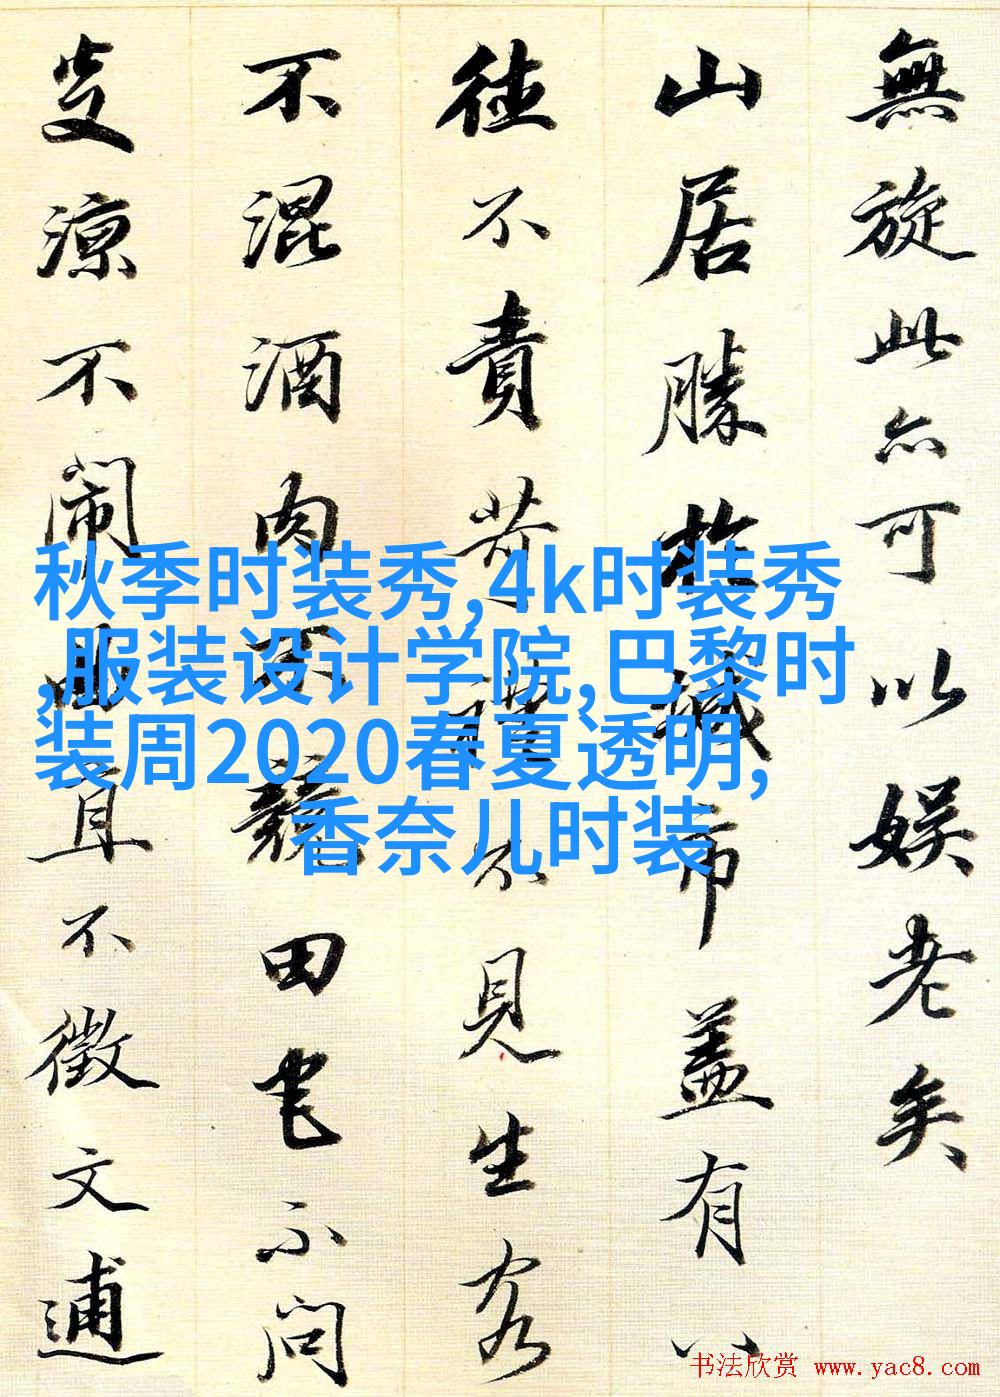 無旋此亦可以娱老矣
山居勝於城市盖有八
徳不責苛禮不見生客
不混酒肉不競田宅不问
炎凉不闹曲直不徵文逋
秋季时装秀,4k时装秀
,服装设计学院,巴黎时
装周2020春夏透明,
香奈儿时装
书法欣赏 www.yac8.com